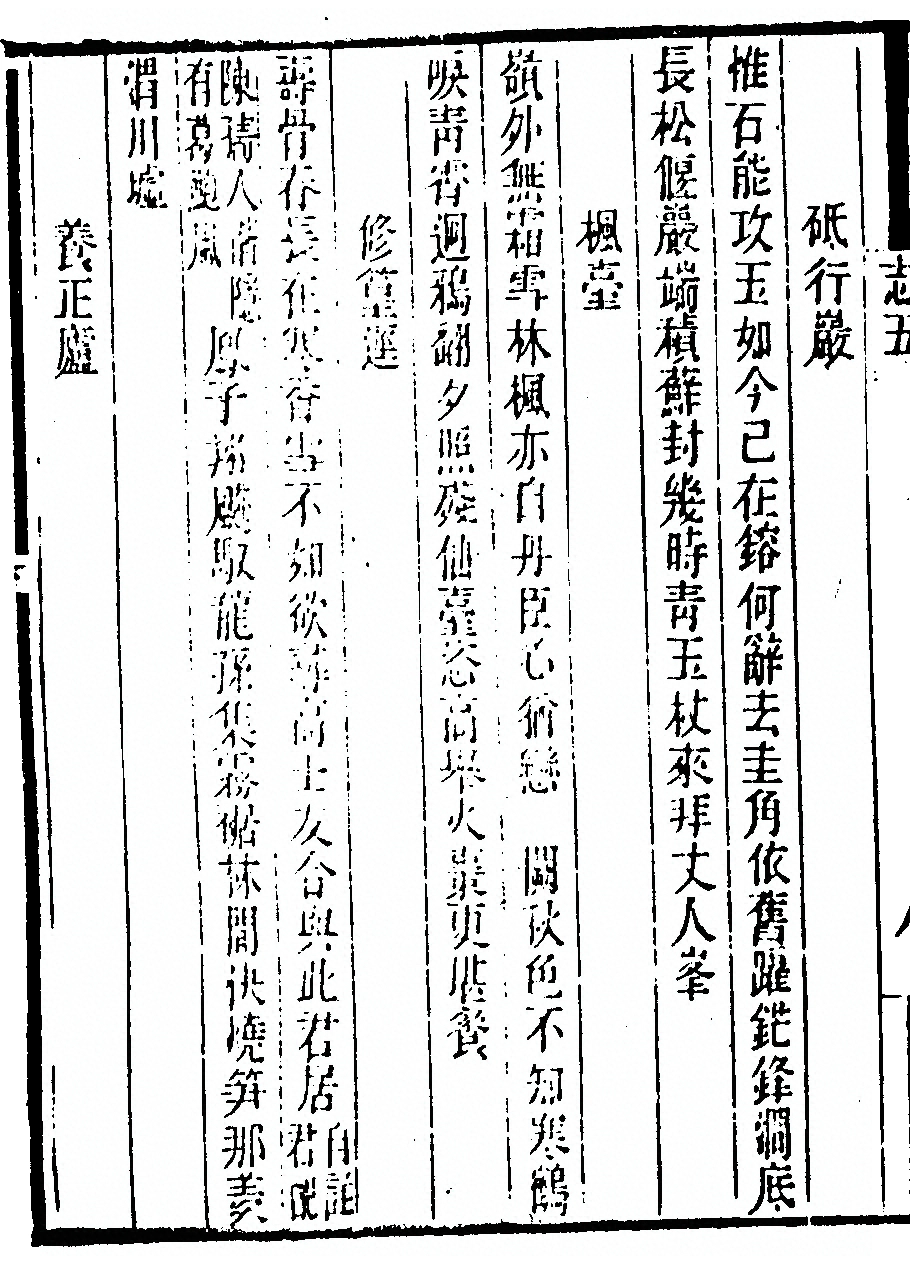 志五
砥行巖
惟石能攻玉如今已在鎔何辭去圭角依舊躍鋩鋒澗底
長松偃巖端積蘚封幾時青玉杖來非丈人峯
楓臺
嶺外無霜雪林楓亦自丹臣心猶戀 闕秋色不知寒鶴
唳青霄迥鴉翻夕照殘仙臺恣高舉火棗更堪餐
修篁逕
壽骨春長在寒香出不如欲尋高士友合與此君居自註君
陳璹人有葛隱風鳳子翔颷馭龍孫集霧裾林間訣燒笋那羨
渭川墟
養正廬